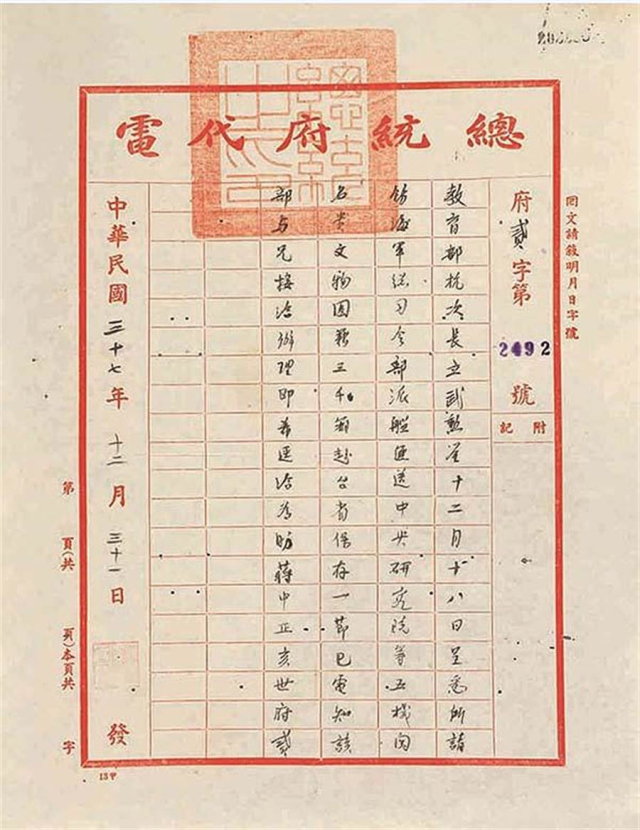 總統府代電
回文請敘明月日字號
府貳字第2492號
附記
教育部杭次長立武勳鑒十二月十八日呈悉所請
飭海軍總司令部派艦運送中央研究院等五機関
名貴文物図籍三千箱赴台省保存一節已電知該
部与兄接洽辦理即希逕洽為盼蔣中正亥世府貳
中華民國三十七年十二月三十一日發
第 頁(共 頁)本頁共 字
13甲